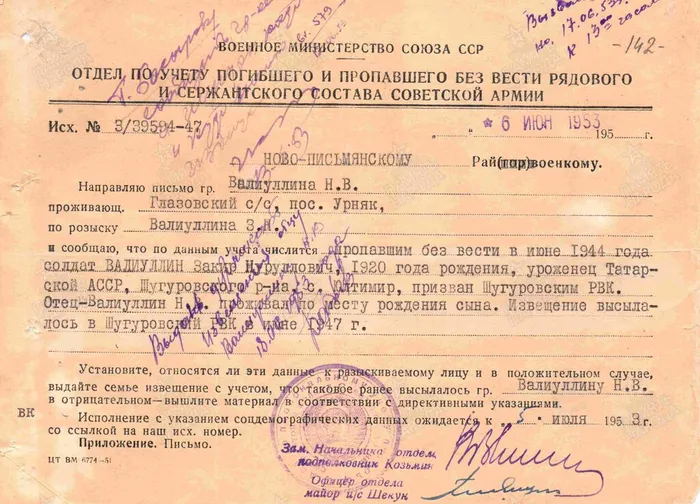 ВОЕННОЕ МИНИСТЕРСТВО СОЮЗА ССР
-142-
ОТДЕЛ ПО УЧЕТУ ПОГИБШЕГО И ПРОПАВШЕГО БЕЗ ВЕСТИ РЯДОВОГО
И СЕРЖАНТСКОГО СОСТАВА СОВЕТСКОЙ АРМИИ
Исх. № 3/39594-47
6 ИЮН 1953
195 г.
НОВО-ПИСЬМЯНСКОМУ Рай(гор)военкому.
Направляю письмо гр. Валиуллина Н.В.
проживающ. Глазовский с/с, пос. Урняк,
по розыску Валиуллина З.Н.
и сообщаю, что по данным учета числится пропавшим без вести в июне 1944 года
солдат ВАЛИУЛЛИН Закир Нурулович, 1920 года рождения, уроженец Татар-
ской АССР, Шугуровского р-на, с. Юлтимир, призван Шугуровским РВК.
Отец-Валиуллин Н.В. проживало по месту рождения сына. Извещение высыла-
лось в Шугуровский РВК в июне 1947 г.
Выдано
извещение
18.06.1953 года
Установите, относятся ли эти данные к разыскиваемому лицу и в положительном случае,
выдайте семье извещение с учетом, что таковое ранее высылалось гр. Валиуллину Н.В.
в отрицательном—вышлите материал в соответствии с директивными указаниями.
ВК
Исполнение с указанием соцдемографических данных ожидается к 5 июля 1953 г.
со ссылкой на наш исх. номер.
Приложение. Письмо.
ЦТ ВМ 6774—51
Зам. Начальника отдела
подполковник Козьмин
Офицер отдела
майор и/с Шекун